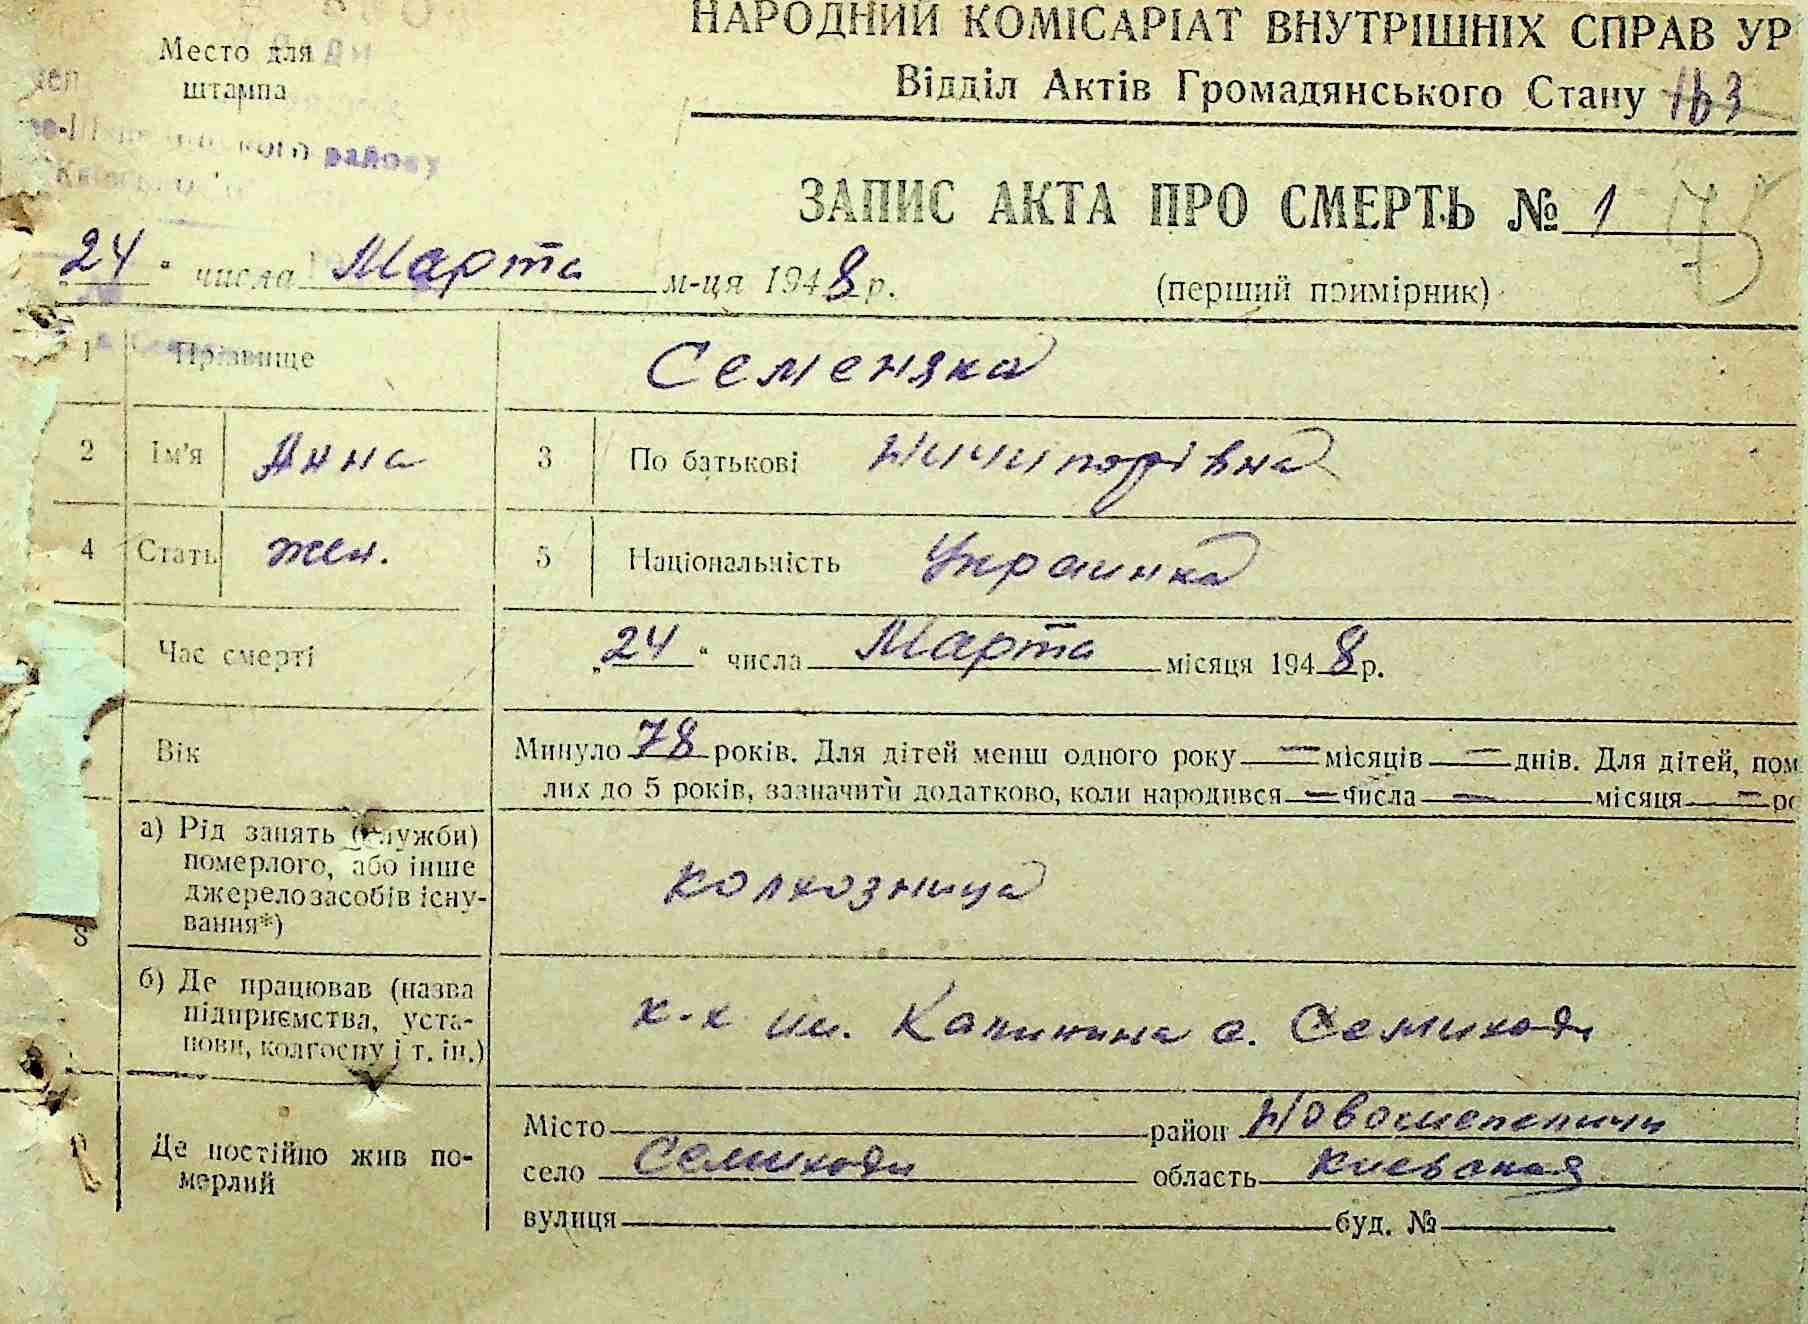 НАРОДНИЙ КОМІСАРІАТ ВНУТРІШНІХ СПРАВ УР
Відділ Актів Громадянського Стану 163
Место для
штампа
району
ЗАПИС АКТА ПРО СМЕРТЬ № 1 75
24 " числа Марта м-ця 1948 р.
(перший примірник)
1 Прізвище Семеняка
2 Ім'я Анна 3 По батькові Ничипорівна
4 Стать жен. 5 Національність Украинка
Час смерті „24 " числа Марта місяця 1948 р.
Вік Минуло 78 років. Для дітей менш одного року — місяців — днів. Для дітей, пом
лих до 5 років, зазначити додатково, коли народився — числа — місяця — ро
8 а) Рід занять (служби) померлого, або інше джерело засобів існу-
вання*) колхозница
б) Де працював (назва підприємства, уста-
нови, колгоспу і т. ін.) к-х им. Калинина с. Семиходи
Де постійно жив по-
мерлий
Місто район Новошепеличи
село Семиходи область Киевская
вулиця буд. №